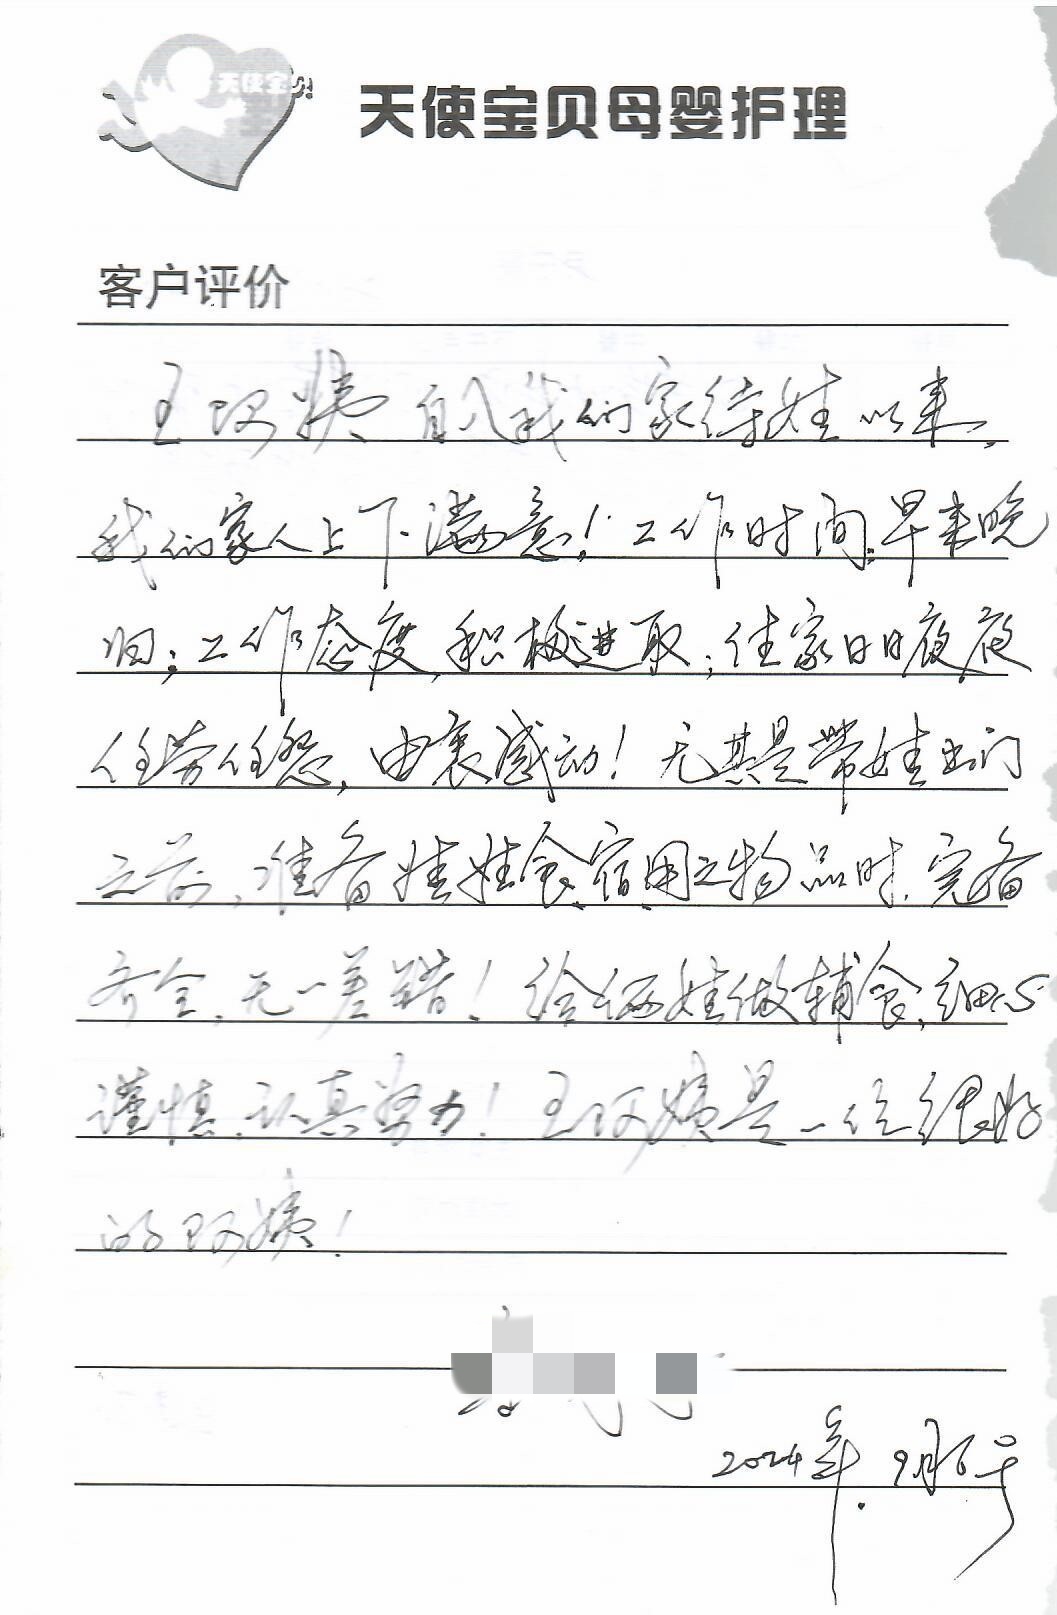 天使宝贝
天使宝贝母婴护理
客户评价
王阿姨自入我们家待娃以来,
我们家人上下满意!工作时间,早来晚
归;工作态度,积极进取;住家日日夜夜
任劳任怨,由衷感动!尤其是带娃出门
之前,准备娃娃食、宿、用之物品时,完备
齐全,无一差错!给俩娃做辅食,细心
谨慎,认真努力!王阿姨是一位很好
的阿姨!
2024年.9月6号